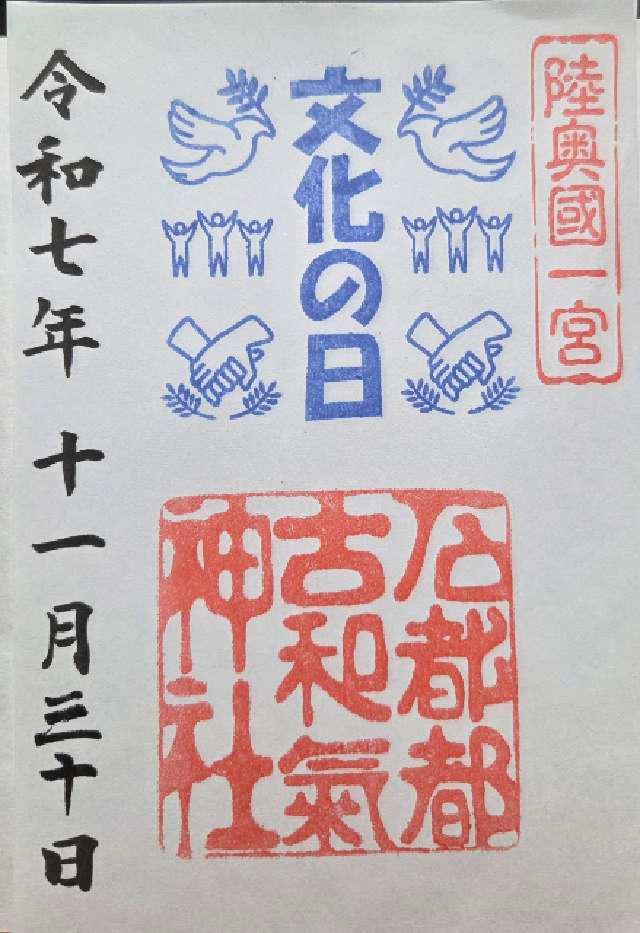 陸奥國一宮
文化の日
石都都
古和氣
神社
令和七年 十一月三十日